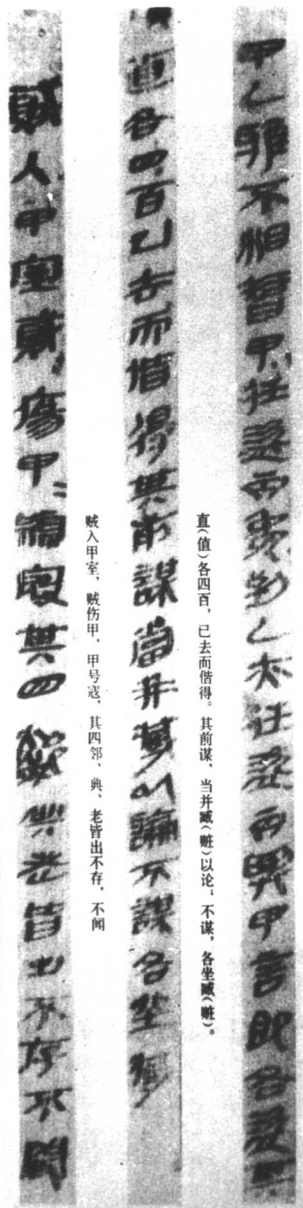 甲乙雅不相智甲往盗丙毚到乙亦往盗丙與甲言即各盗其
直各四百已去而偕得其前謀當并臧以論不謀各坐臧
直(值)各四百，已去而偕得。其前谋，当并臧(赃)以论；不谋，各坐臧(赃)。
賊入甲室賊傷甲甲號寇其四鄰典老皆出不存不聞
贼入甲室，贼伤甲，甲号寇，其四邻、典、老皆出不存，不闻